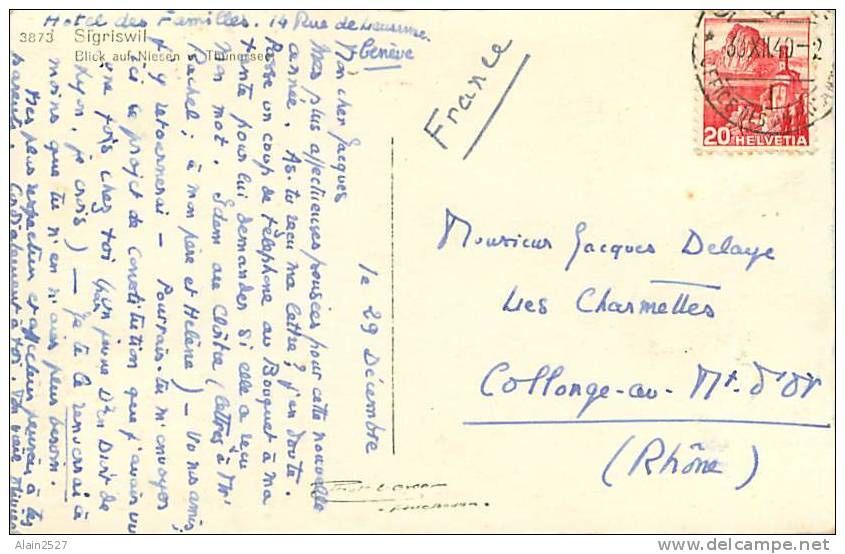 Hotel des Familles. 14 Rue de Lausanne.
Genève
3873 Sigriswil
Blick auf Niesen u. Thunersee
le 29 Décembre
Mon cher Jacques
Mes plus affectueuses pensées pour cette nouvelle
année. As-tu reçu ma lettre? j'en doute.
Passe un coup de téléphone au Bouquet à ma
tante pour lui demander si elle a reçu
mon mot. Idem au Châtre (lettres à
Rachel; à mon père et Hélène) - Vous amis
j'y retournerai - Pourrais-tu m'envoyer
ici le projet de Constitution que j'avais vu
une fois chez toi
Lyon, je crois) - Je te le renverrai à
moins que tu n'en aies plus besoin.
Mes plus respectueuses et affectueuses pensées à tes
parents. Cordialement à toi. Ton vieux
France
Monsieur Jacques Delaye
Les Charmettes
Collonge-au-Mt. d'Or
(Rhône)
30.XII.40-2
20 HELVETIA
Alain2527
delcampe.net